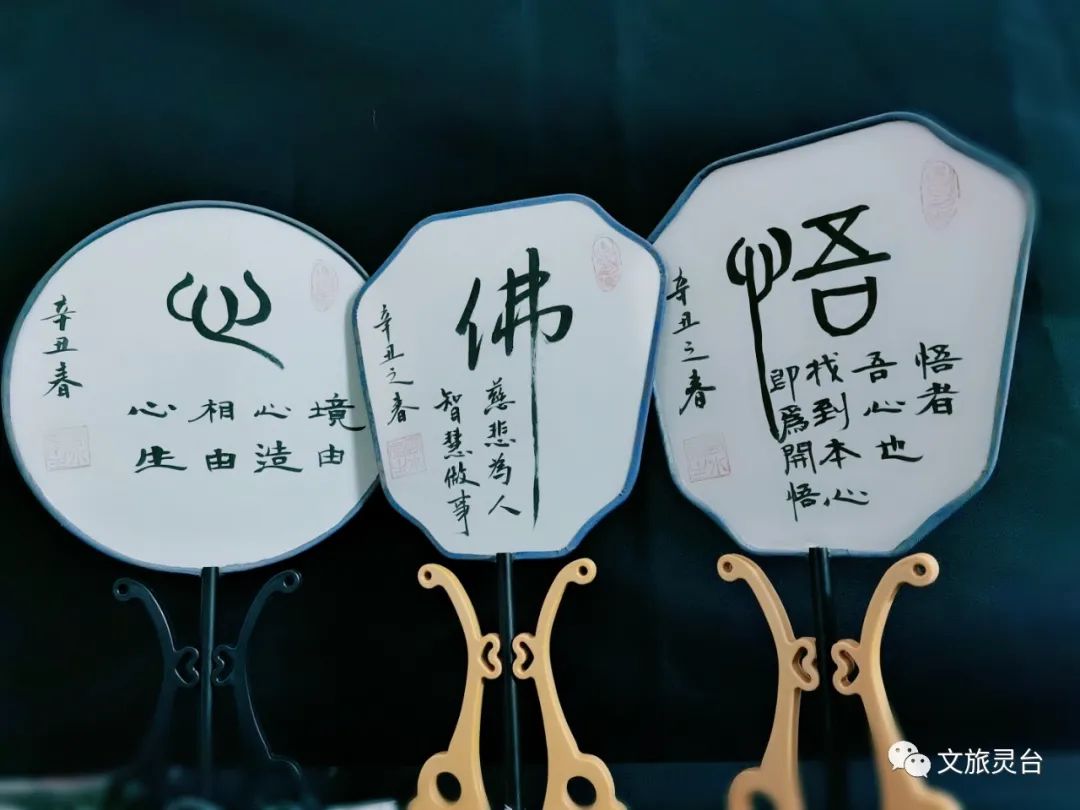 心
境由
心造
相由
心生
辛丑春
佛
慈悲為人
智慧做事
辛丑之春
悟
悟者
吾心也
找到本心
即爲開悟
辛丑之春
文旅灵台